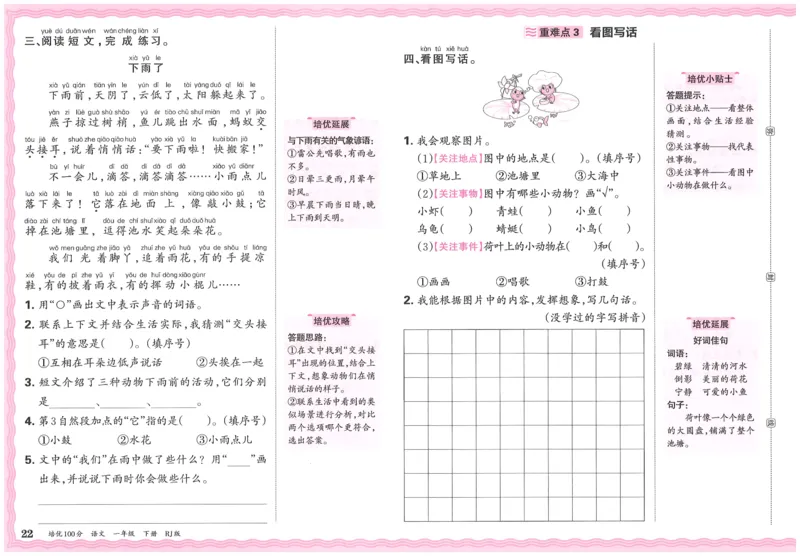 yuè dú duǎn wén wán chéng liàn xí
三、阅读短文，完成练习。
xià yǔ le
下雨了
xià yǔ qián tiān yīn le yún dī le tài yáng duǒ qǐ lái le
下雨前，天阴了，云低了，太阳躲起来了。
yàn zi lüè guò shù shāo yú ér tiào chū shuǐ miàn mǎ yǐ jiāo
燕子掠过树梢，鱼儿跳出水面，蚂蚁交
tóu jiē ěr shuō zhe qiāo qiāo huà yào xià yǔ la kuài bān jiā
头接耳，说着悄悄话：“要下雨啦！快搬家！”
bù yī huìr dī dā dī dā dī dā xiǎo yǔ diǎnr
不一会儿，滴答，滴答滴答……小雨点儿
luò xià lái le tā luò zài dì miàn shàng xiàng qiāo xiǎo gǔ tā
落下来了！它落在地面上，像敲小鼓；它
diào zài chí táng lǐ dòu de chí shuǐ xiào qǐ duǒ duǒ huā
掉在池塘里，逗得池水笑起朵朵花。
wǒ men guāng zhe jiǎo yā zhuī zhe yǔ huā yǒu de shǒu tí liáng
我们光着脚丫，追着雨花，有的手提凉
xié yǒu de pī zhe yǔ yī yǒu de huī dòng xiǎo gùnr
鞋，有的披着雨衣，有的挥动小棍儿……
1. 用“○”画出文中表示声音的词语。
2. 联系上下文并结合生活实际，我猜测“交头接
耳”的意思是( )。(填序号)
①互相在耳朵边低声说话 ②头挨在一起
3. 短文介绍了三种动物下雨前的活动，它们分别
是________、________、________。
4. 第3自然段加点的“它”指的是( )。(填序号)
①小鼓 ②水花 ③小雨点儿
5. 文中的“我们”在雨中做了些什么？用“____”画
出来，并说说下雨时你会做些什么。
22 培优100分 语文 一年级 下册 RJ版
培优延展
与下雨有关的气象谚语：
①雷公先唱歌，有雨也
不多。
②日晕三更雨，月晕午
时风。
③早晨下雨当日晴，晚
上下雨到天明。
培优攻略
答题思路：
①在文中找到“交头接
耳”出现的位置，结合上
下文，想象动物们在悄
悄说话的样子。
②联系生活中看到的类
似场景进行分析，对比
两个选项哪个更符合，
选出答案。
重难点3 看图写话
kàn tú xiě huà
四、看图写话。
1. 我会观察图片。
(1)【关注地点】图中的地点是( )。(填序号)
①草地上 ②池塘里 ③大海中
(2)【关注事物】图中有哪些小动物？画“√”。
小虾( ) 青蛙( ) 小鱼( )
乌龟( ) 蜻蜓( ) 小鸟( )
(3)【关注事件】荷叶上的小动物在( )和( )。
(填序号)
①画画 ②唱歌 ③打鼓
2. 我能根据图片中的内容，发挥想象，写几句话。
(没学过的字写拼音)
培优小贴士
答题提示：
①关注地点——看整体
画面，结合生活经验
猜测。
②关注事物——找代表
性事物。
③关注事件——看图中
小动物在做什么。
培优延展
好词佳句
词语：
碧绿 清清的河水
倒影 美丽的荷花
宁静 可爱的小鱼
句子：
荷叶像一个个绿色
的大圆盘，铺满了整个
池塘。